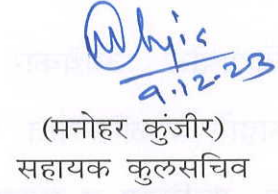 9.12.23
(मनोहर कुंजीर)
सहायक कुलसचिव